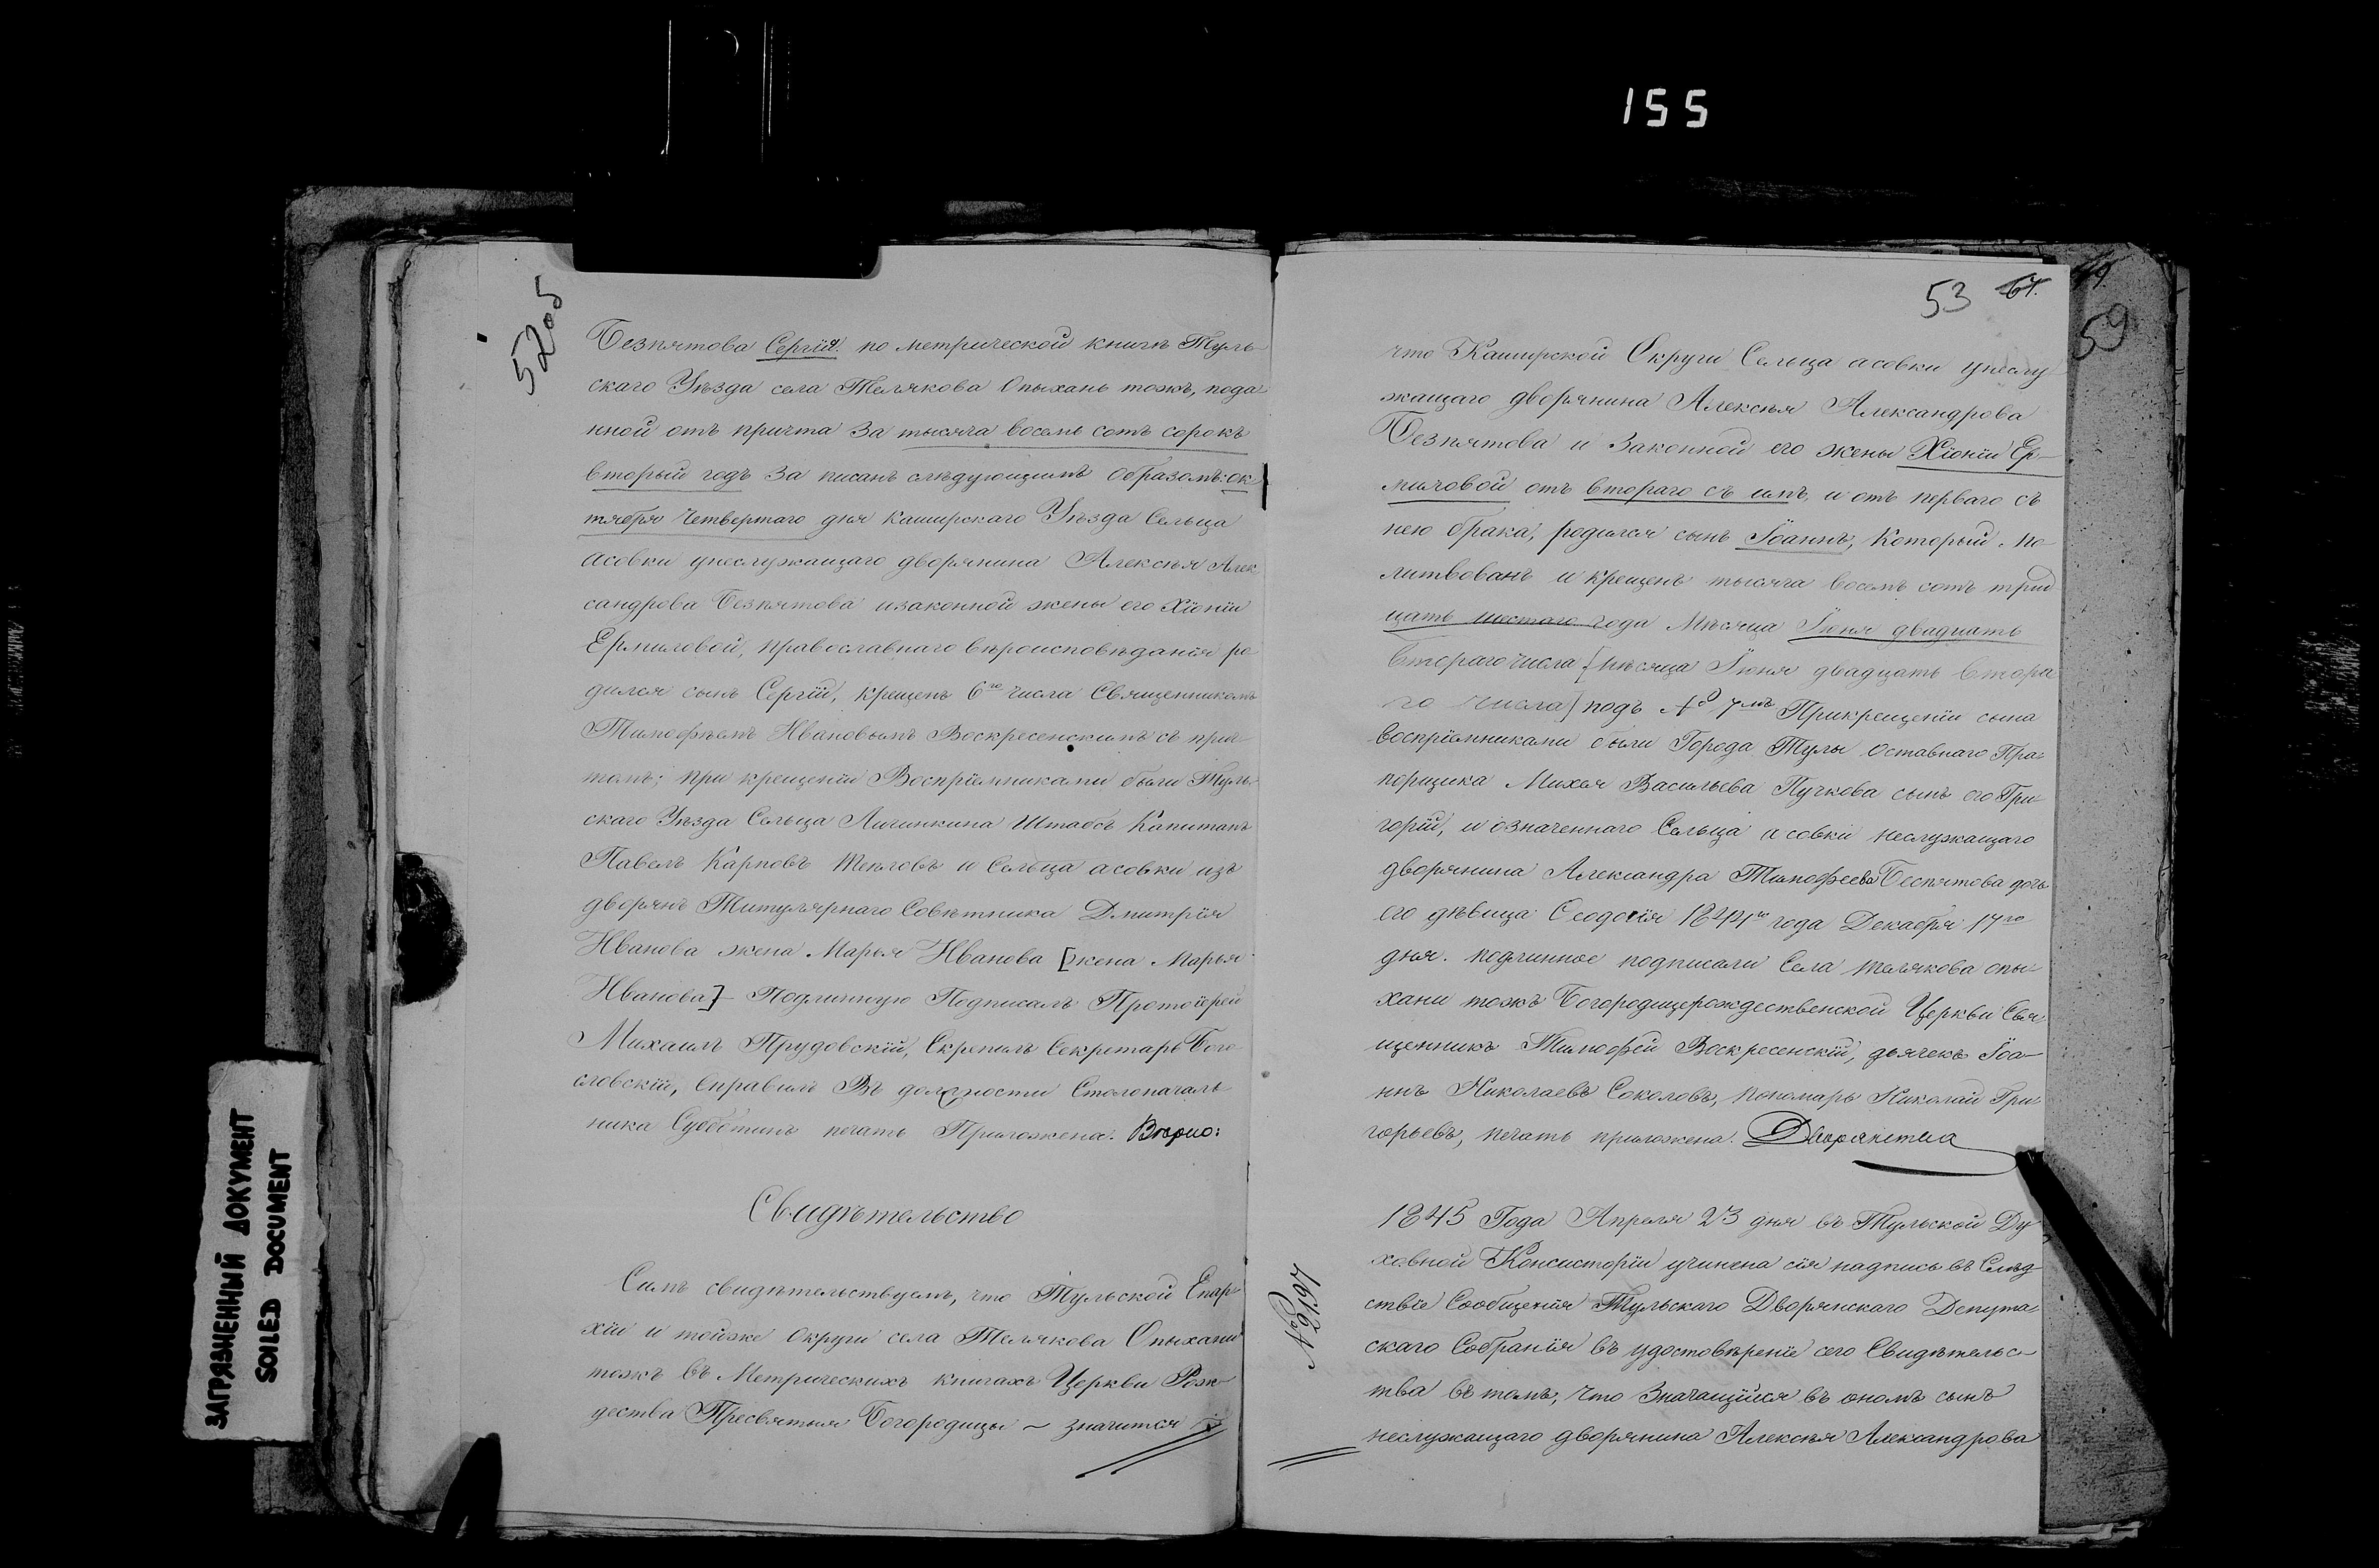 155
5205
Безпятова Сергія. по метрической книгѣ Туль-
скаго Уѣзда села Телякова Опыхань тожъ, пода-
нной отъ причта За тысяча восемь сотъ сорокъ
вторый годъ За писанъ слѣдующимъ Образомъ: ок-
тября Четвертаго дня Каширскаго Уѣзда Сельца
асовки унеслужащаго дворянина Алексѣя Алек-
сандрова Безпятова изаконной жены его Хіоніи
Ермиловой, православнаго вѣроисповѣданія ро-
дился сынъ Сергій, крещенъ 6го числа Священникомъ
Тимофѣемъ Ивановымъ Воскресенскимъ съ прич-
томъ; при крещеніи Воспріемниками были Туль-
скаго Уѣзда Сельца Штабсъ Капитанъ
Павелъ Карповъ и Сельца асовки изъ
дворянъ Титулярнаго Совѣтника Дмитрія
Иванова жена Марья Иванова [жена Марья
Иванова] – Подлинную Подписалъ Протоіерей
Михаилъ Прудовскій, Скрепилъ Секретарь Бого-
словскій, Справилъ Въ должности Столоначаль-
ника Субботинъ печать Приложена. Вѣрно:
Свидѣтельство
Симъ свидѣтельствуемъ, что Тульской Епар-
хіи и тойже Округи села Телякова Опыхани
тожъ въ Метрическихъ книгахъ Церкви Рож-
дества Пресвятыя Богородицы ~ значится
53 67.
59
что Каширской Округи Сельца асовки унеслу-
жащаго дворянина Алексѣя Александрова
Безпятова и Законной его жены Хіоніи Ер-
миловой отъ втораго съ имъ, и отъ перваго съ
нею брака, родился сынъ Іоаннъ, Который по-
литвованъ и крещенъ тысяча восемь сотъ трид-
цать шестаго года Мѣсяца Іюня двадцать
втораго числа [мѣсяца Іюня двадцать втора-
го числа] подъ № 7мъ Прикрещеніи сына
воспріемниками были Города Тулы Оставнаго Пра-
порщика Михея Васильева Пучкова сынъ его Гри-
горій, и означеннаго Сельца асовки неслужащаго
дворянина Александра Тимофеева Беспятова дочь
его дѣвица Ѳеодосія 1841го года Декабря 17го
дня. подлинное подписали Села Телякова опы-
хани тожъ Богородицерождественской Церкви Свя-
щенникъ Тимофей Воскресенскій, дьячекъ Іоа-
ннъ Николаевъ Соколовъ, пономарь Николай Гри-
горьевъ, печать приложена. Дворянства
№ 2197
1845 Года Апреля 23 дня въ Тульской Ду-
ховной Консисторіи учинена сія надпись въ Слѣд-
ствіе Сообщенія Тульскаго Дворянскаго Депута-
скаго Собранія въ удостовѣреніе сего Свидѣтельс-
тва въ томъ, что Значащійся въ ономъ сынъ
неслужащаго дворянина Алексѣя Александрова
ЗАГРЯЗНЕННЫЙ ДОКУМЕНТ
SOILED DOCUMENT